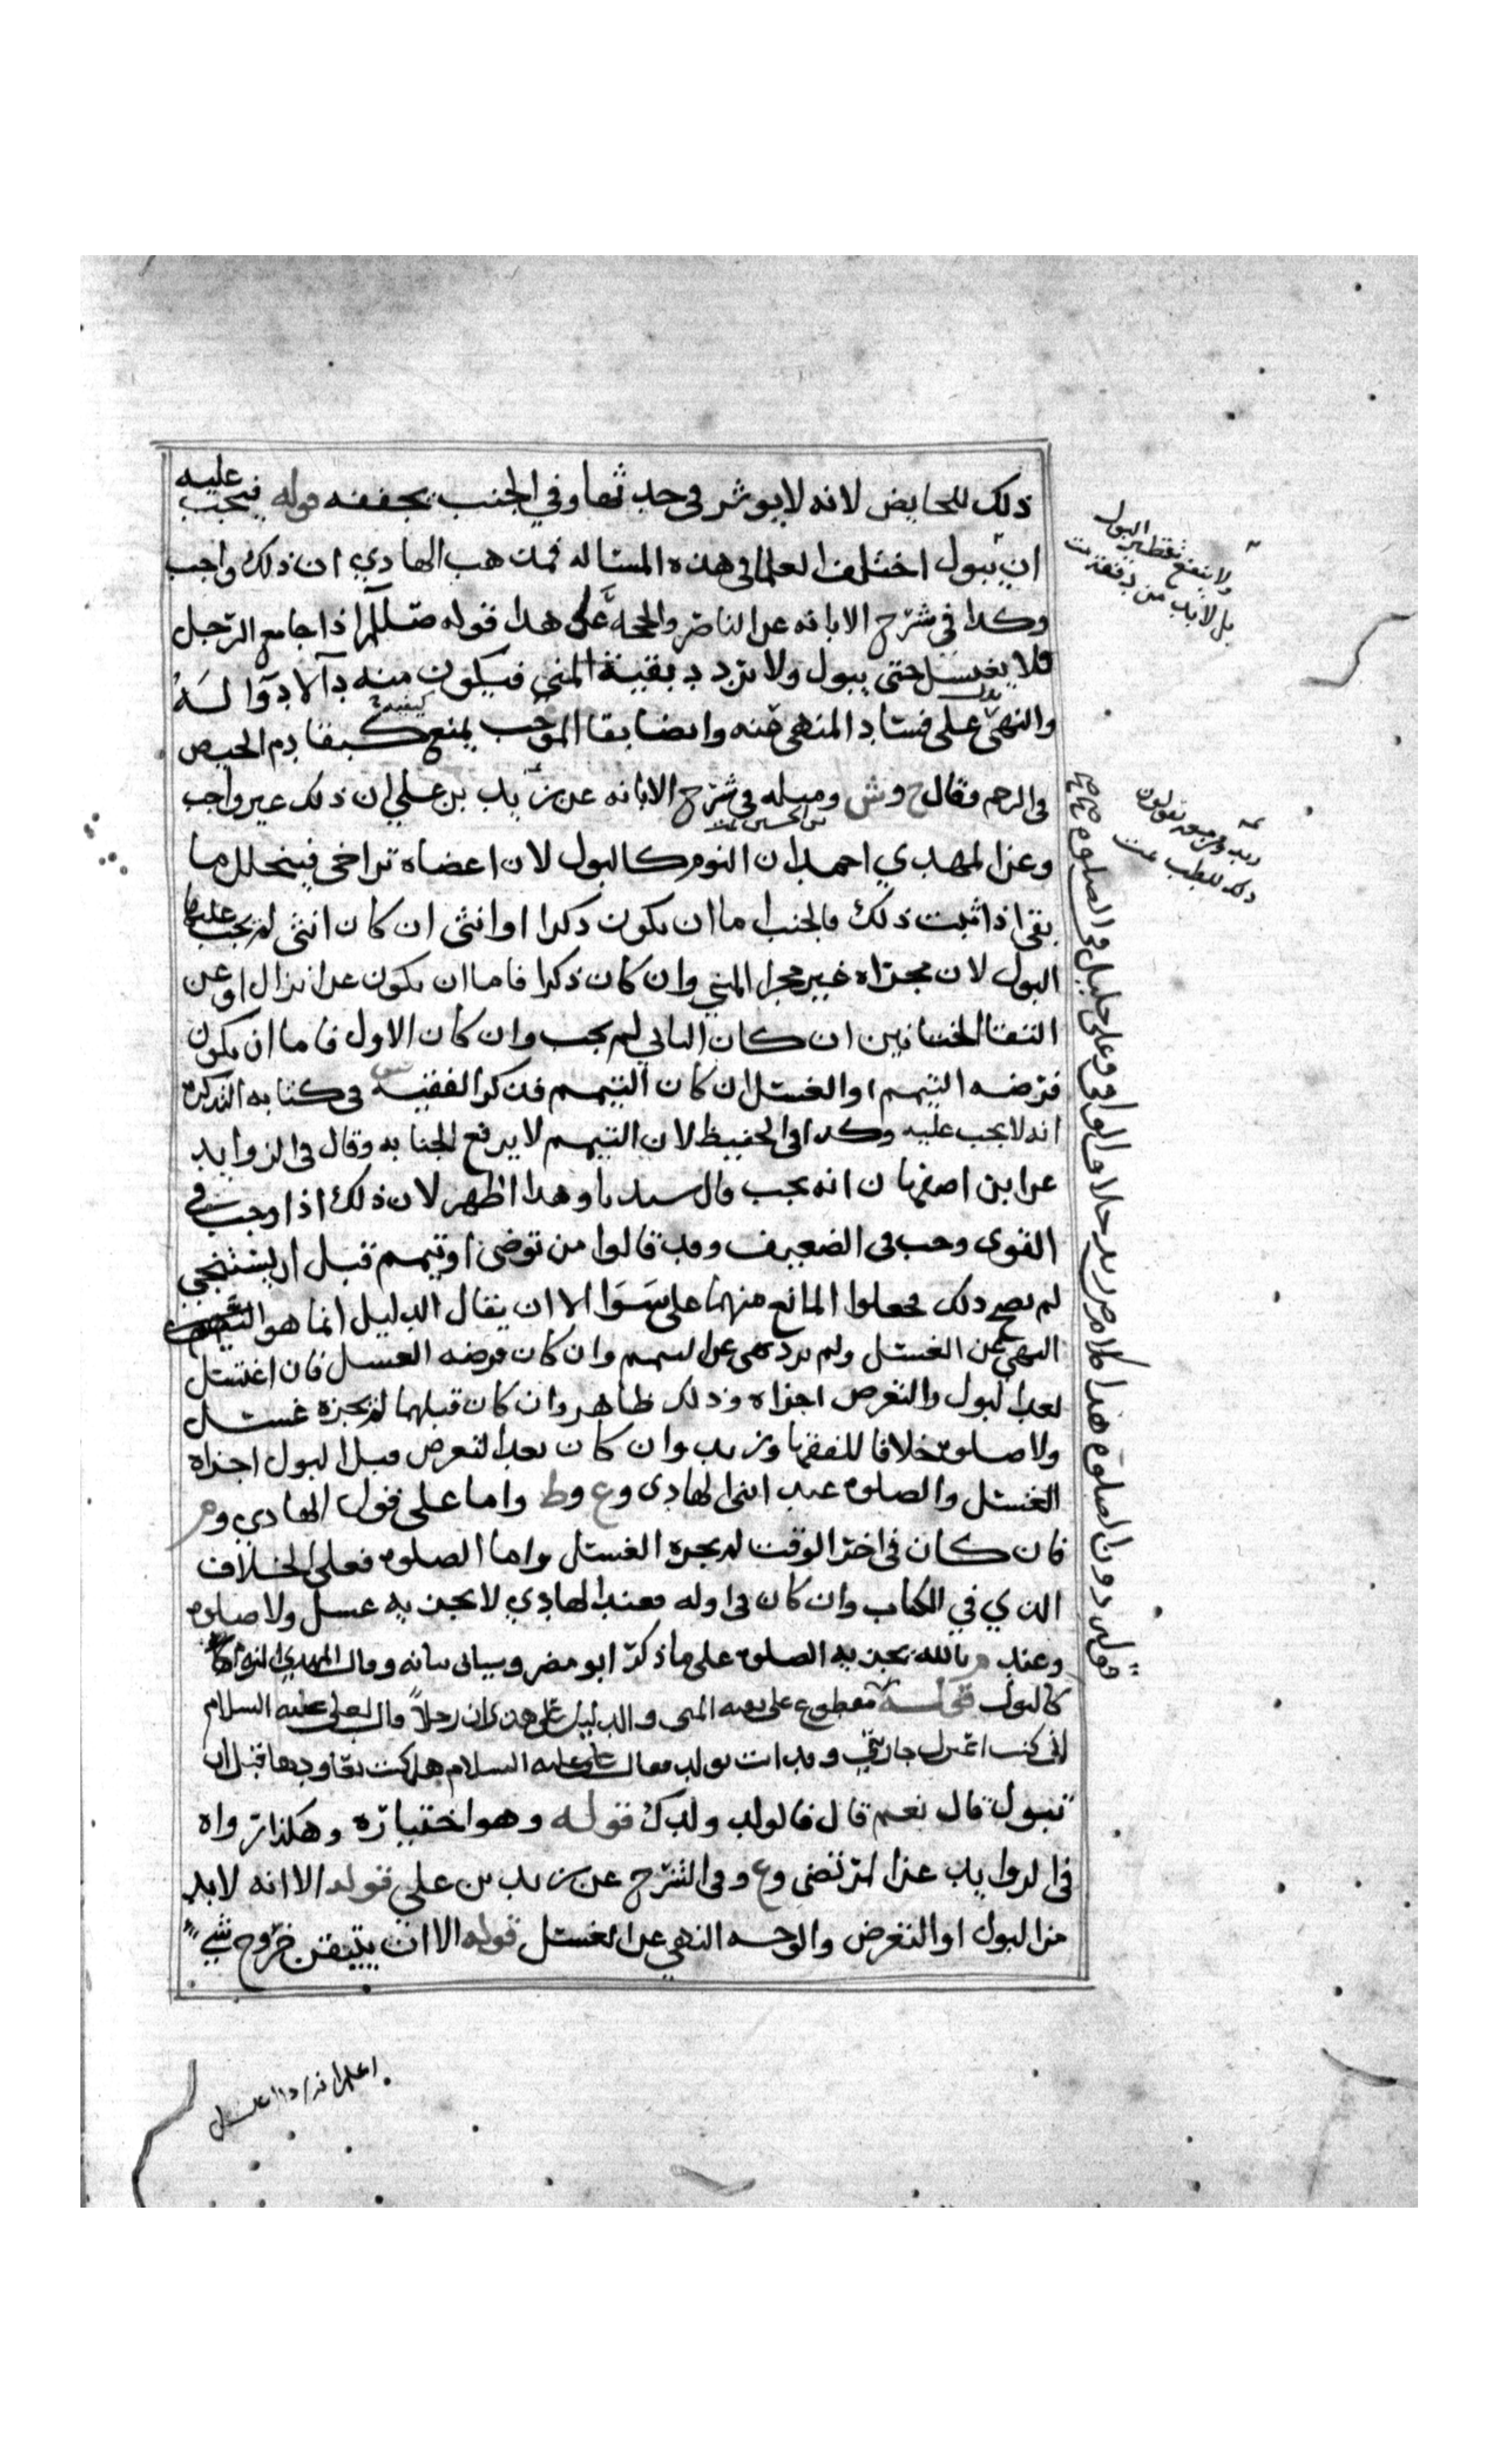 ذلك للحايض لانه لا يوثر في حدثها وفي الجنب يخففه قوله فيجب عليه
ان يبول اختلف العلما في هذه المسئاله فمذهب الهادي ان ذلك واجب
وكدا في شرح الابانه عن الناصر والحجة على هدا قوله صللم اذا جامع الرجل
فلا يغتسل حتى يبول ولا تردد بقية المني فيكون منه دآ لا دوآ لَهُ
والنهي يدل على فساد المنهي عنه وايضا بقا الموجب يمنع كبقا دم الحيض
في الرحم وقال ح وش ومثله في شرح الابانه عن زيد بن علي ان ذلك غير واجب
وعن المهدي احمد بن الحسين ان النوم كالبول لان اعضاه تراخى فينحلل ما
بقى اذا ثبت ذلك فالجنب اما ان يكون دكرا او انثى ان كان انثى لم يجب عليها
البول لان مجراه غير مجرا المني وان كان ذكرا فاما ان يكون عن انزال او عن
التقا الختانين ان كان الثاني لم يجب وان كان الاول فاما ان يكون
فرضه التيمم او الغسل ان كان التيمم فذكر الفقيه في كتابه التذكره
انه لا يجب عليه وكدا في الحفيظ لان التيمم لا يرفع الجنابه وقال في الزوايد
عن ابن اصفهان انه يجب قال سيدنا وهدا اظهر لان ذلك اذا وجب في
القوى وجب في الضعيف وقد قالوا من توضى او تيمم قبل ان يستنجي
لم يصح ذلك فجعلوا المانع منهما على سَوَا الا ان يقال الدليل انما هو
النهي عن الغسل ولم يرد نهي عن التيمم وان كان فرضه الغسل فان اغتسل
بعد البول والتعرض اجزاه وذلك ظاهر وان كان قبلهما لم يجزه غسل
ولا صلوة خلافا للفقها وزيد وان كان بعد التعرض قبل البول اجزاه
الغسل والصلوه عند ابني الهادي وع وط واما على قول الهادي وم
فان كان في اخر الوقت لم يجزه الغسل واما الصلوه فعلى الخلاف
الذي في الكتاب وان كان في اوله فعند الهادي لا يجزيه غسل ولا صلوه
وعند م بالله يجزيه الصلوه على ما ذكره ابو مضر وسياتي بيانه وقال المهدي النوم
كالبول قوله مقطوع على بقيه المنى والدليل على هدى ان رجلاً قال لعلي عليه السلام
اني كنت اعزل جاريتي وقد اتت بولد فقال علي عليه السلام هل كنت تعاودها قبل ان
تبول قال نعم قال فالولد ولدك قوله وهو اختياره وهكذا رواه
في الزوايد عن المرتضى وع وفي الشرح عن زيد بن علي قوله الا انه لابد
من البول او التعرض والوجه النهي عن الغسل قوله الا ان يتيقن خروج شي
ولا ينفع تقطير البول
بل لابد من دفقه
اعلم انه اذا اغتسل